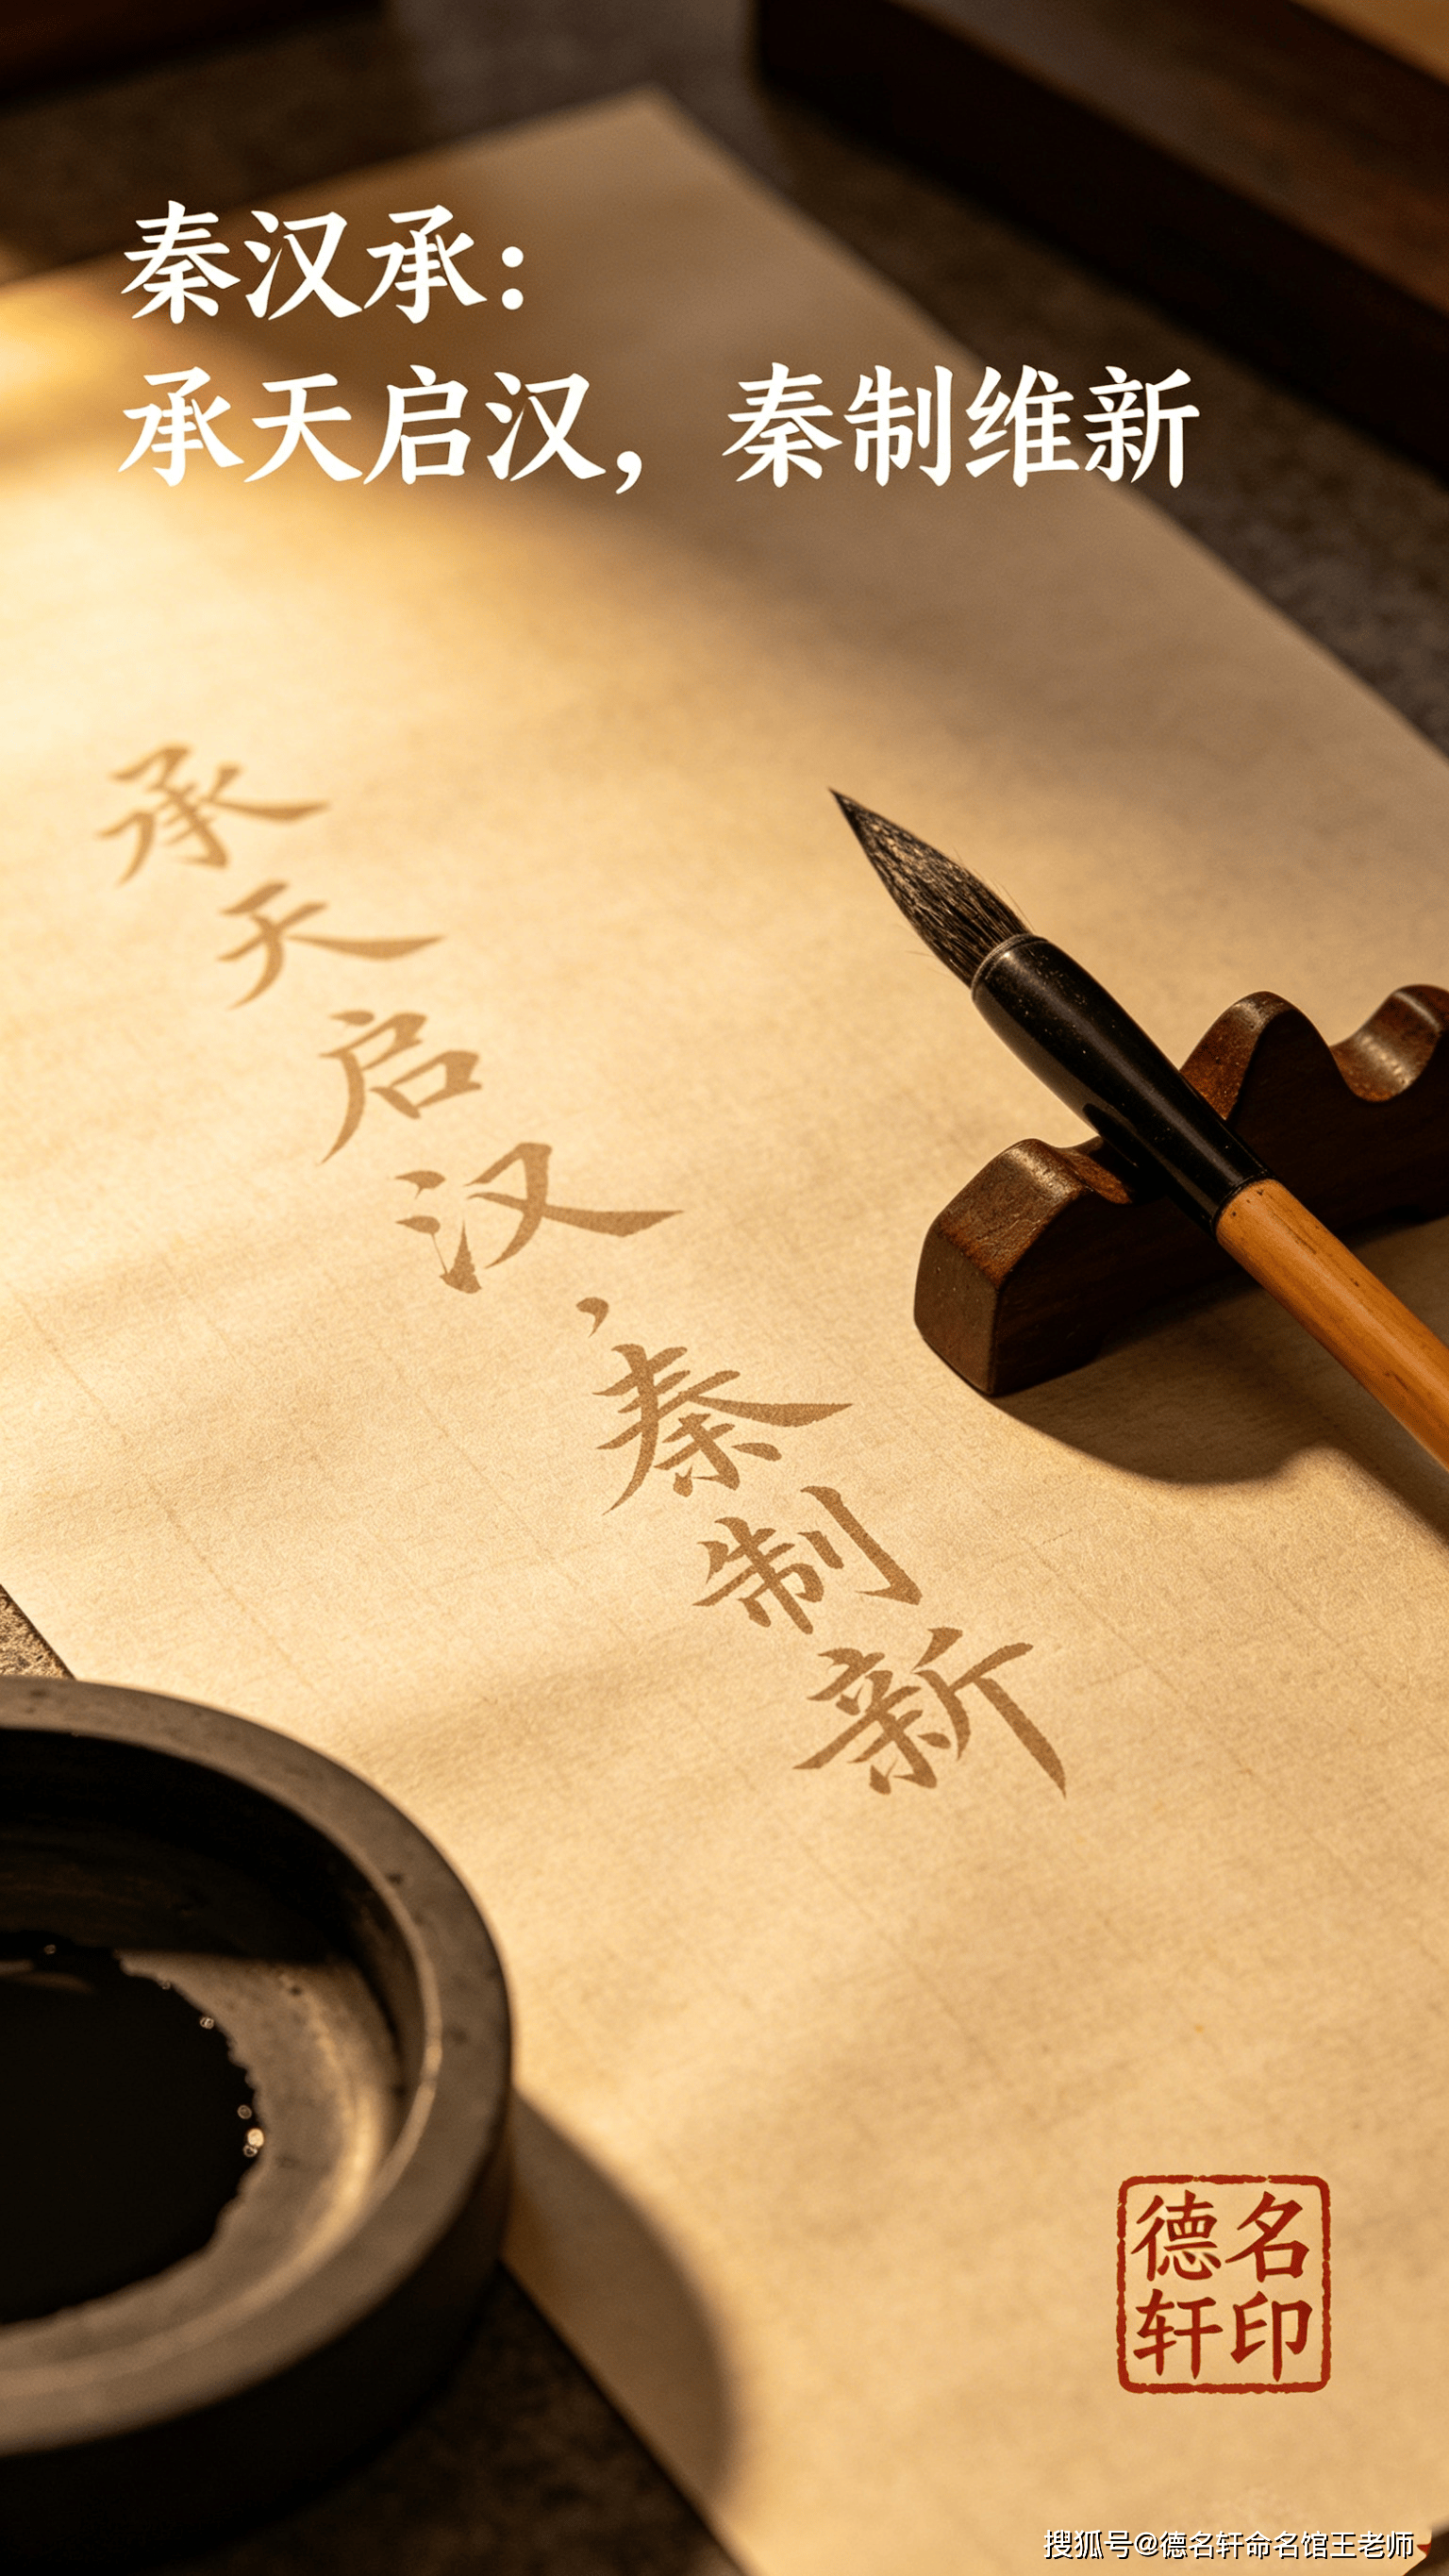 秦汉承：
承天启汉，秦制维新
承天启汉，秦制新
德名
轩印
搜狐号@德名轩命名馆王老师